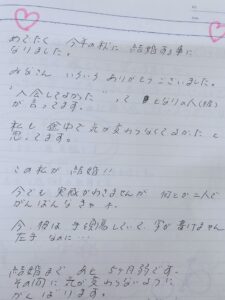 めでたく 今年の秋に 結婚する事に
なりました。
みなさん いろいろ ありがとうございました。
"入会してよかった" って となりの人(彼)
が 言ってます。
私も 途中で 気が変わらなくてよかった と
思ってます。
この私が 結婚!!
今でも 実感がわきませんが 何とか二人で
がんばんなきゃ。
今、彼は 手を負傷していて、字が書けません
左手 なのに…
結婚まで あと 5ヶ月弱です。
その間に 気が変わらないように
がんばります。